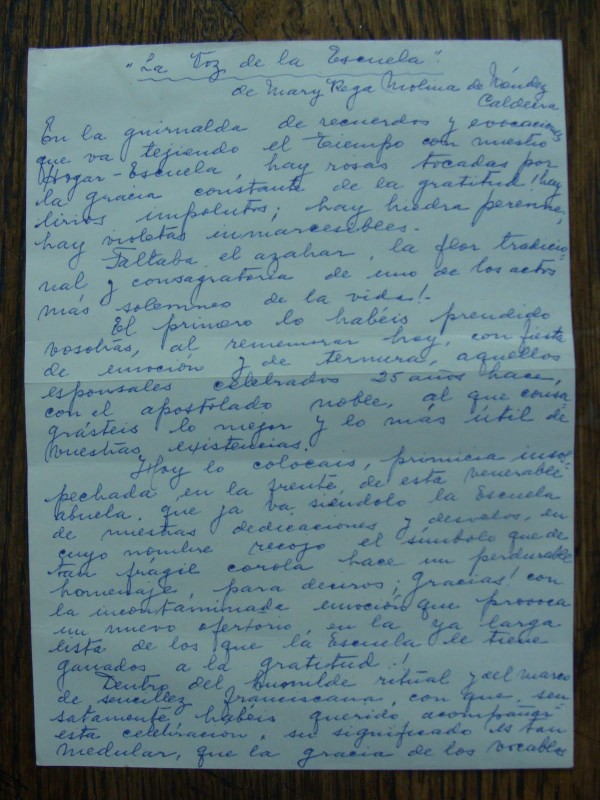 "La Voz de la Escuela".
de Mary Rega Molina de Méndez
Caldeira
En la guirnalda de recuerdos y evocaciones
que va tejiendo el tiempo con nuestro
Hogar-Escuela, hay rosas tocadas por
la gracia constante de la gratitud! hay
lirios impolutos; hay hiedra perenne,
hay violetas inmarcesibles.-
Faltaba el azahar, la flor tradicio-
nal y consagratoria de uno de los actos
más solemnes de la vida!-
El primero lo habéis prendido
vosotras, al rememorar hoy, con fiesta
de emoción y de ternura, aquellos
esponsales celebrados 25 años hace,
con el apostolado noble, al que consa-
grásteis lo mejor y lo más útil de
vuestras existencias.
Hoy lo colocais, primicia insos-
pechada, en la frente de esta venerable
abuela que ya va siéndolo la Escuela
de nuestras dedicaciones y desvelos, en
cuyo nombre recojo el símbolo que de
tan frágil corola hace un perdurable
homenaje, para deciros; gracias! con
la incontaminada emoción que provoca
un nuevo ofertorio, en la ya larga
lista de los que la Escuela le tiene
ganados a la gratitud.!
Dentro del humilde ritual y del marco
de sencillez franciscana, con que, sen
satamente, habéis querido acompañar
esta celebración, su significado es tan
medular, que la gracia de los vocablos